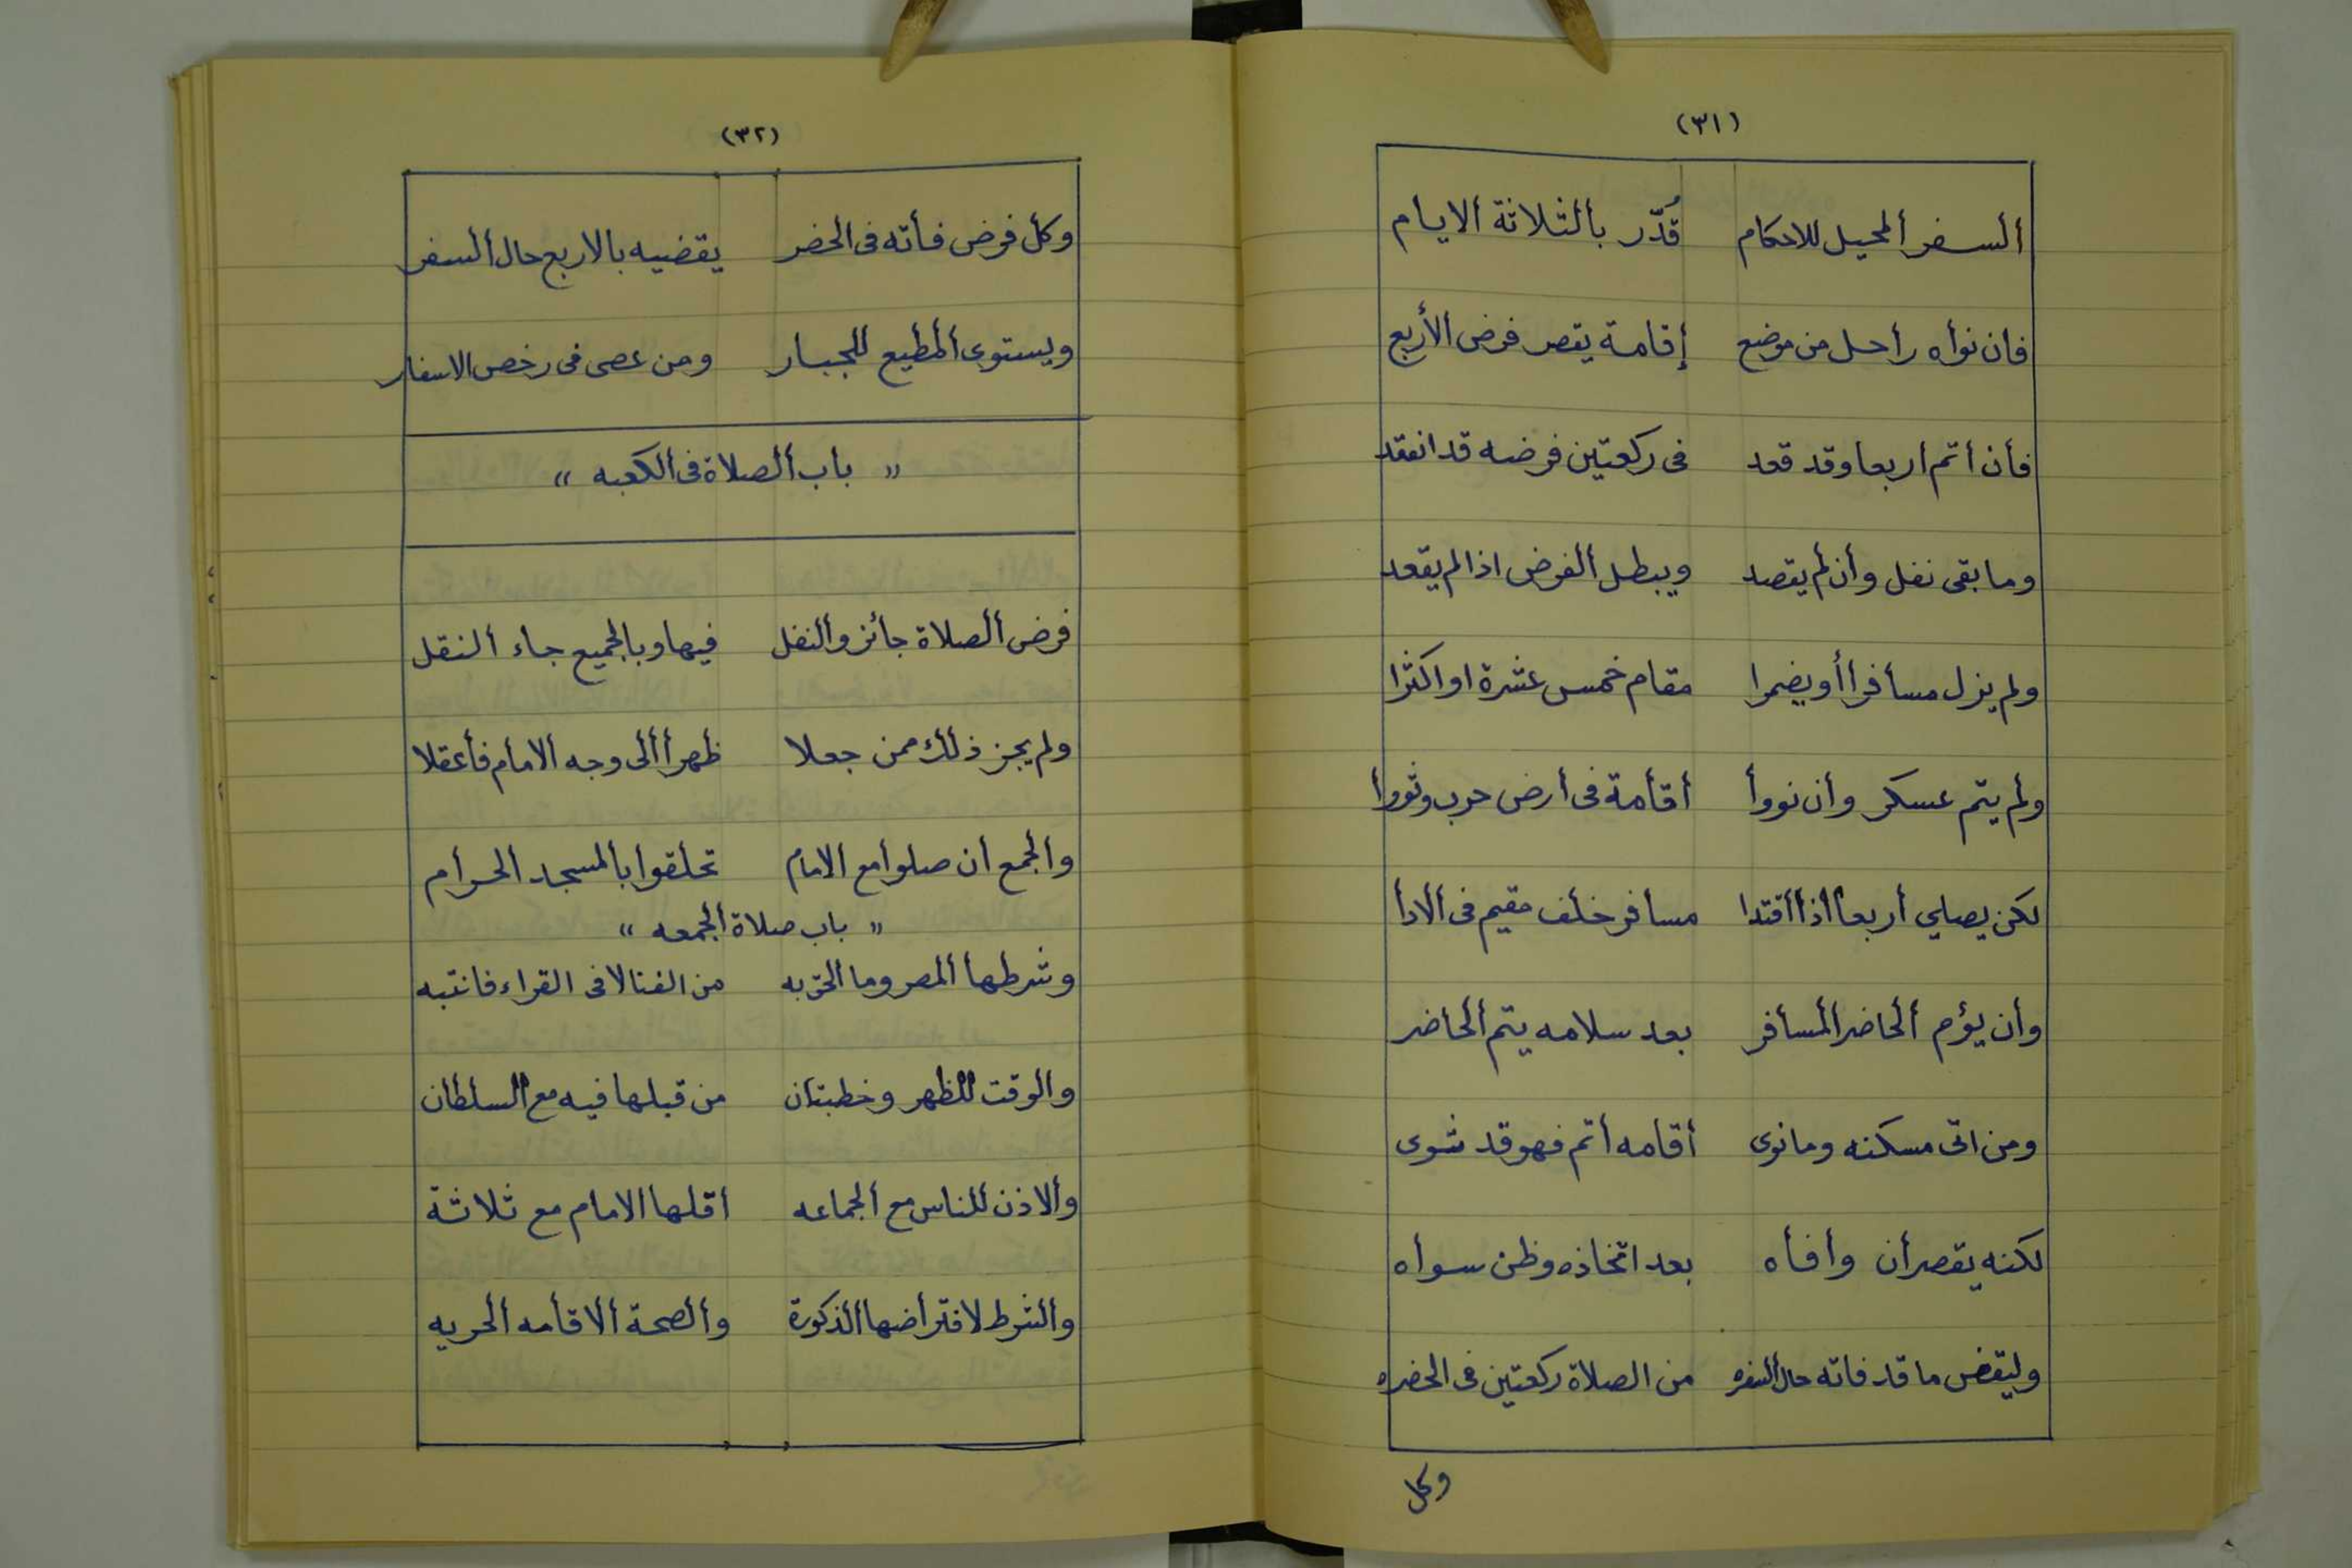 (٣١)
ألسفر ألمحيل للاحكام قُدّر بألثلاثة الايام
فان نوأه رأحل من موضع إقامة يقصر فرض الأربع
فأن أتم أربعا وقد قعد فى ركعتين فرضه قد انعقد
وما بقى نفل وأن لم يقصد ويبطل ألفرض اذا لم يقعد
ولم يزل مسأفرا أو يضمرا مقام خمس عشرة او اكثرا
ولم يتم عسكر وأن نووأ أقأمة فى أرض حرب وثووا
لكن يصلي أربعا أذا أقتدا مسأفر خلف مقيم فى ألادأ
وأن يؤم ألحاضر ألمسأفر بعد سلامه يتم ألحاضر
ومن اتى مسكنه وما نوى أقامه أتم فهو قد ثوى
لكنه يقصر أن وأفأه بعد اتخاذه وطن سوأه
وليقض ما قد فاته حال ألسفره من الصلاة ركعتين فى الحضره
وكل
(٣٢)
وكل فرض فأته فى الحضر يقضيه بالاربع حال ألسفر
ويستوى ألمطيع للجبار ومن عصى فى رخص الاسفار
" باب ألصلاة فى ألكعبه "
فرض ألصلاة جأئز وألنفل فيها وبالجميع جاء ألنقل
ولم يجز ذلك ممن جعلا ظهرأ ألى وجه ألامام فأعقلا
وألجمع ان صلوا مع الامام تحلقوا بألمسجد ألحرأم
" باب صلاة ألجمعه "
وشرطها ألمصر وما ألحق به من الفنا لا فى القراء فانتبه
وألوقت للظهر وخطبتان من قبلها فيه مع السلطان
وألاذن للناس مع ألجماعه اقلها الامام مع ثلاثة
وألشرط لافترأضها ألذكورة وألصحة ألاقأمه ألحريه